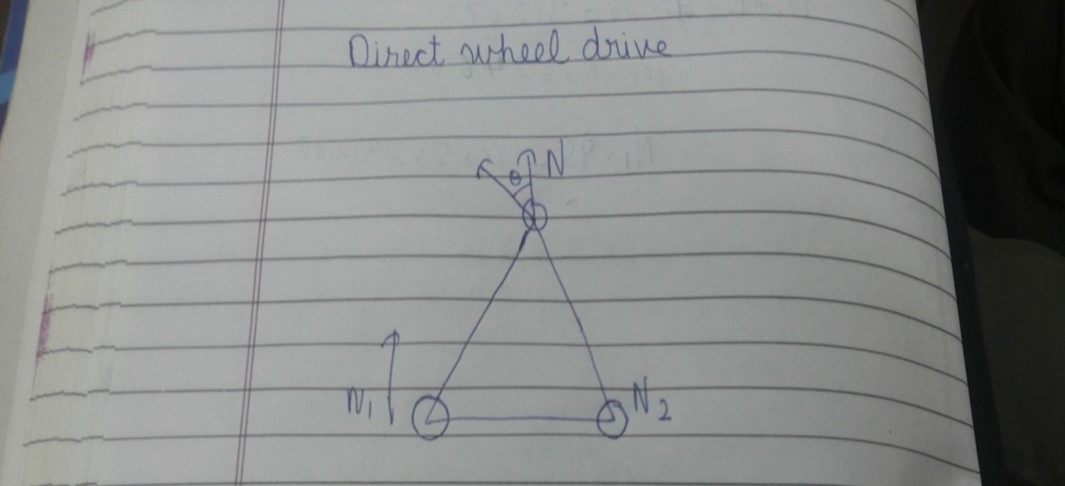 Direct wheel drive
θ N
N₁
N₂